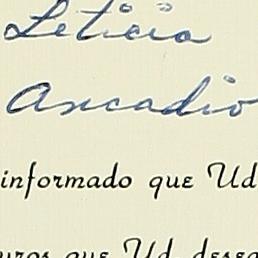 Leticia
Arcadio
informado que Ud
uros que Ud. desea